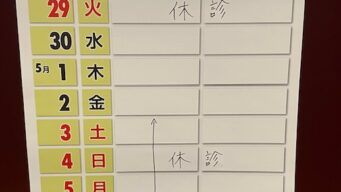 29 火 休 診
30 水
5月 1 木
2 金
3 土
4 日 休 診
5 月